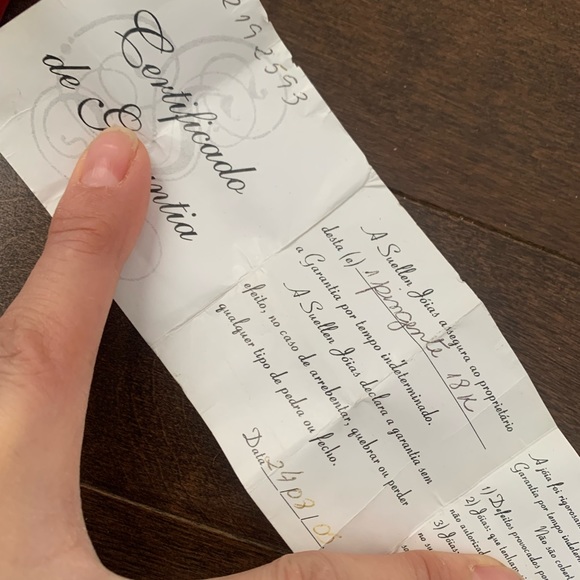 2192593
Certificado
de
A Suellen Jóias assegura ao proprietário
desta (e) 1 pingente 18K
a Garantia por tempo indeterminado.
A Suellen Jóias declara a garantia sem
efeito, no caso de arrebentar, quebrar ou perder
qualquer tipo de pedra ou fecho.
Data 24/03/0
A jóia foi
Garantia por tempo
Não são
1) Defeitos provocados
2) Jóias: que
não
3) Jóias